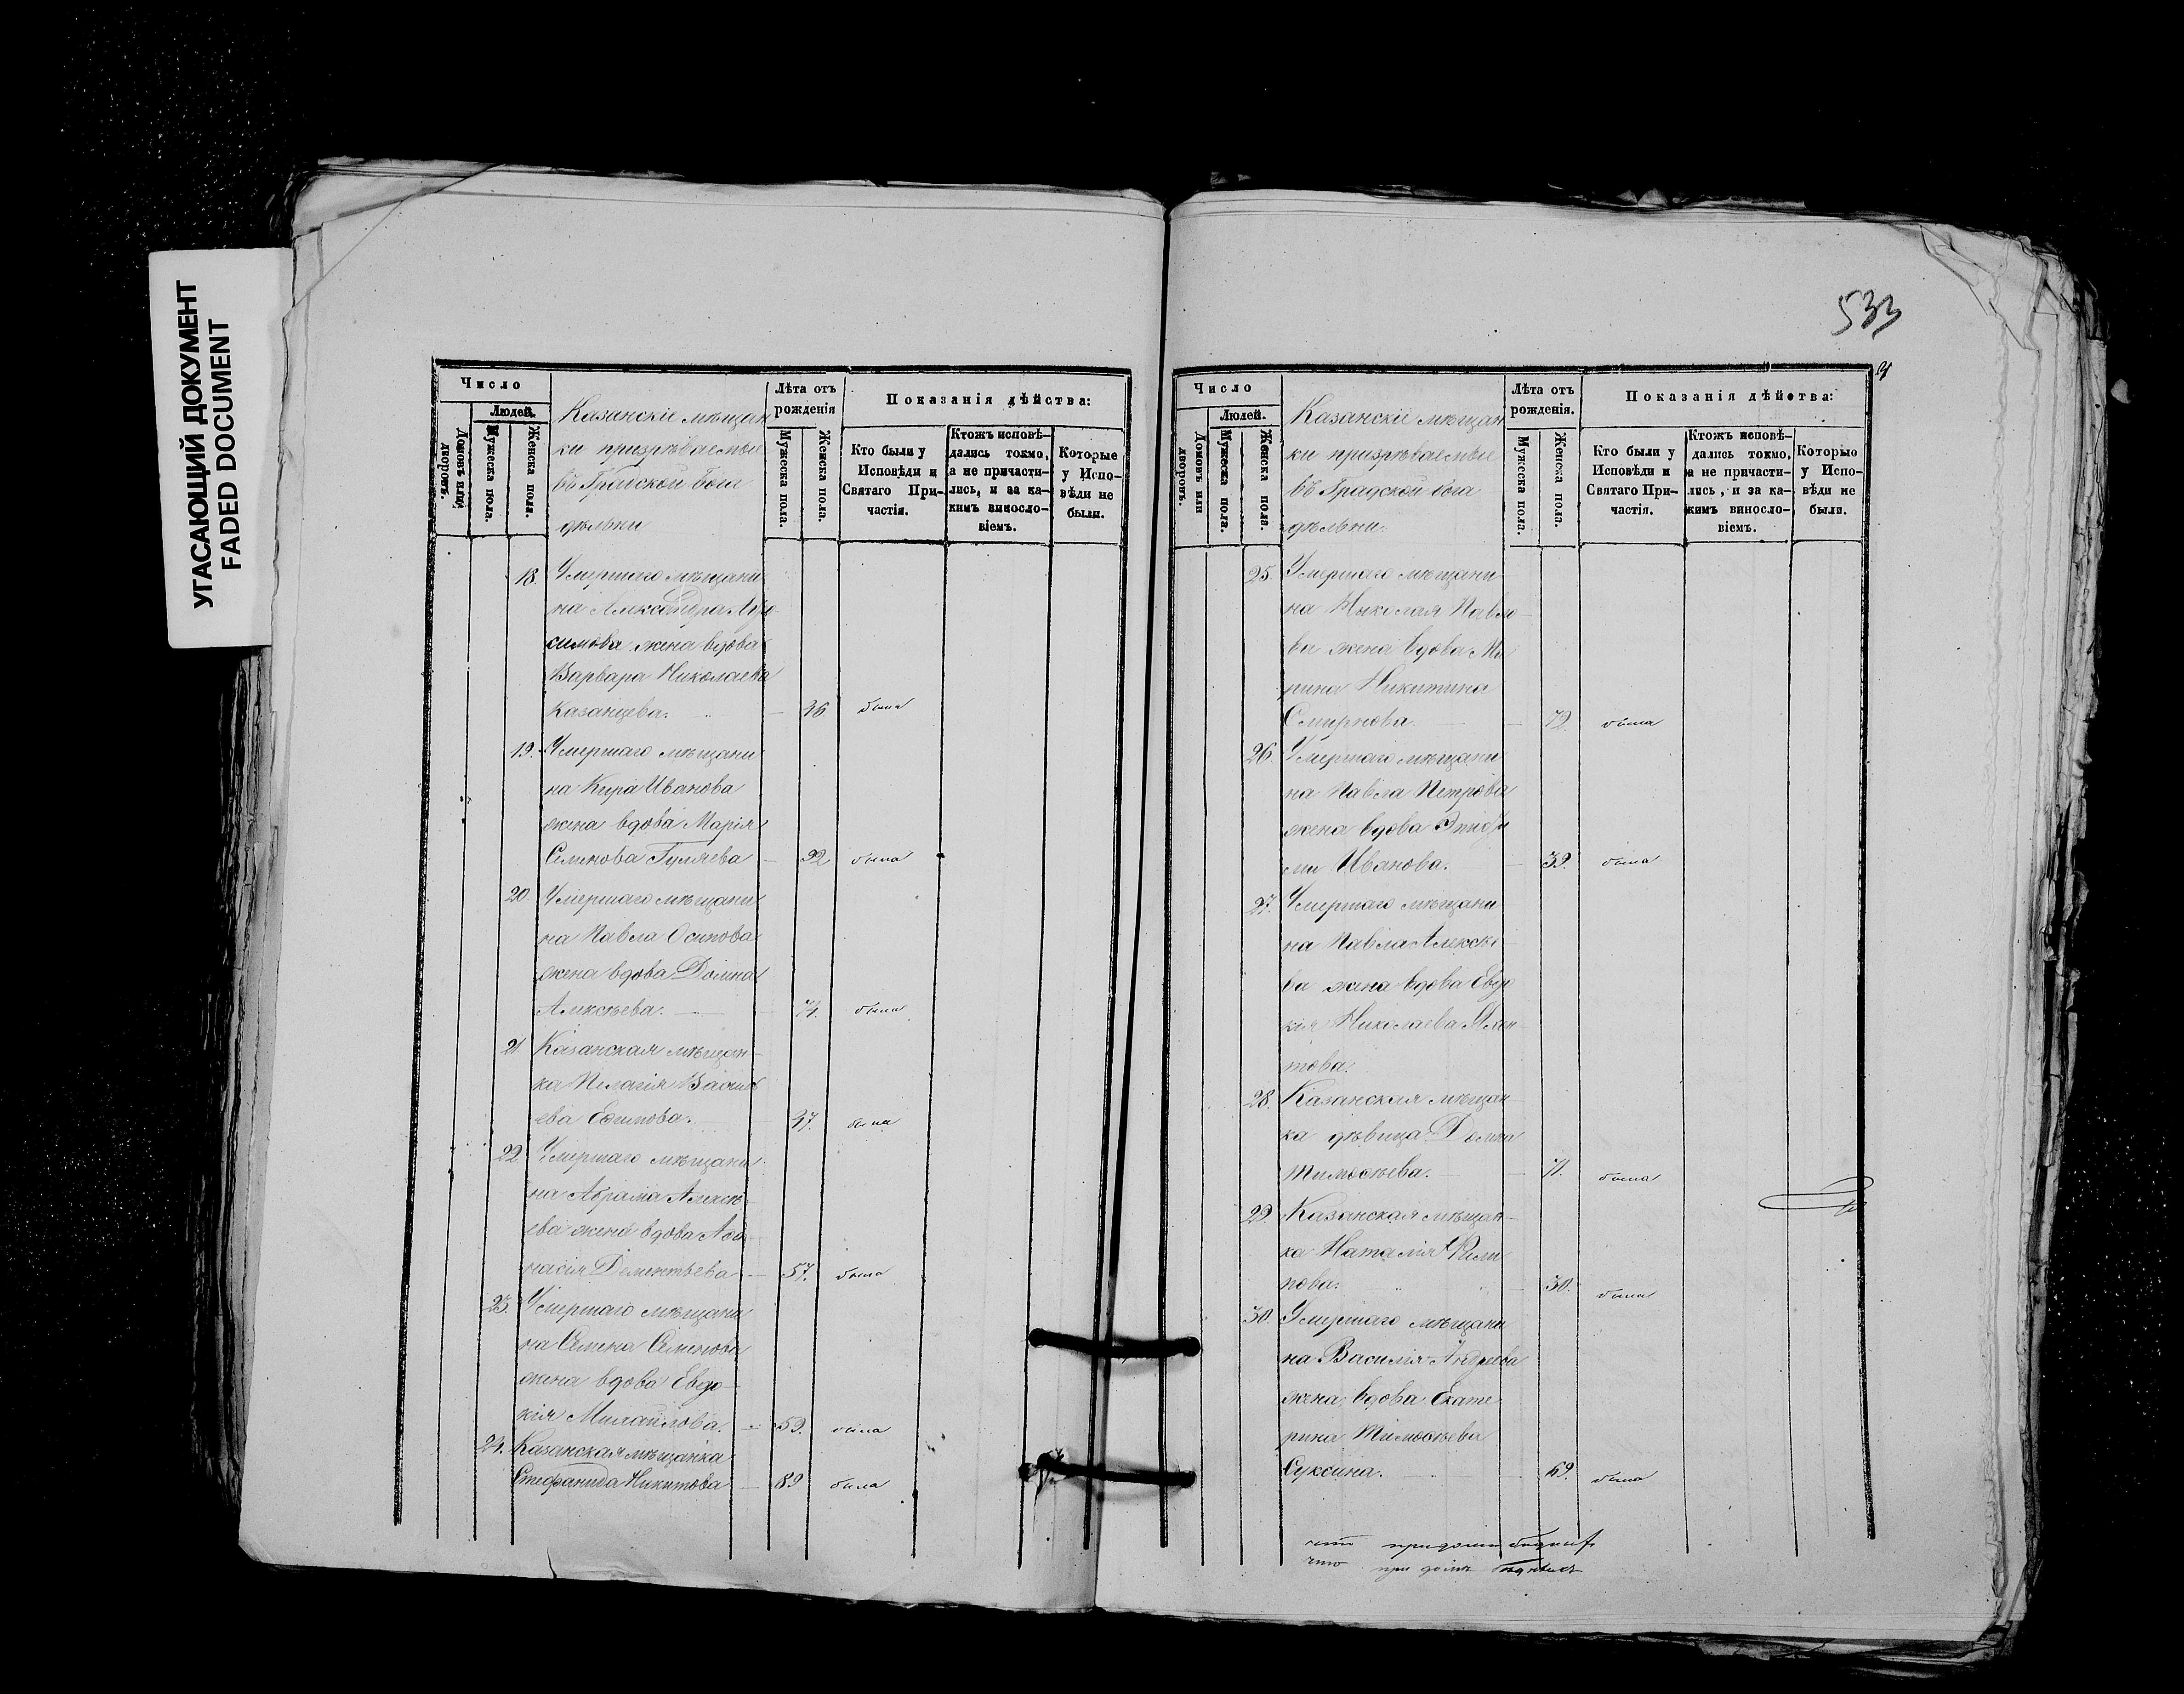 УГАСАЮЩИЙ ДОКУМЕНТ
FADED DOCUMENT
Число
Людей.
Домовъ или дворовъ.
Мужеска пола.
Женска пола.
Казанскіе мѣщан
ки призрѣваемые
въ Градской бога
дѣльни
Лѣта отъ
рожденія
Мужеска пола.
Женска пола.
Показанія дѣйства:
Кто были у
Исповѣди и
Святаго При-
частія.
Ктожъ исповѣ-
дались токмо,
а не причасти-
лись, и за ка-
кимъ виносло-
віемъ.
Которые
у Испо-
вѣди не
были.
18. Умершаго мѣщани
на Александра
симова жена вдова
Варвара Николаева
Казанцева. 36 была
19. Умершаго мѣщани
на Кира Иванова
жена вдова Марія
Семенова Гуляева 92 была
20. Умершаго мѣщани
на Павла Осипова
жена вдова Домна
Алексѣева. 74. была
21. Казанская мѣщан-
ка Пелагія Василь
ева Есипова. 37. была
22. Умершаго мѣщани
на Абрама Алексѣ-
ева жена вдова
насія Дементьева 57. была
23. Умершаго мѣщани
на Семена Семенова
жена вдова Евдо-
кія Михайлова. 59. была
24. Казанская мѣщанка
Стефанида Никитова 89 была
533
Число
Людей.
Домовъ или дворовъ.
Мужеска пола.
Женска пола.
Казанскіе мѣщан
ки призрѣваемые
въ Градской бога
дѣльни.
Лѣта отъ
рожденія.
Мужеска пола.
Женска пола.
Показанія дѣйства:
Кто были у
Исповѣди и
Святаго При-
частія.
Ктожъ исповѣ-
дались токмо,
а не причасти-
лись, и за ка-
кимъ виносло-
віемъ.
Которые
у Испо-
вѣди не
были.
25. Умершаго мѣщани
на Николая Павло
ва жена вдова Ма
рина Никитина
Смирнова. 72. была
26. Умершаго мѣщани
на Павла Петрова
жена вдова
Иванова. 39. была
27. Умершаго мѣщани
на Павла Алексѣ
ва жена вдова Евдо
кія Николаева
това.
28. Казанская мѣщан
ка дѣвица Домна
Тимоѳѣева. 71. была
29. Казанская мѣщан-
ка Наталія Фили
пова. 30. была
30. Умершаго мѣщани
на Василія Андреева
жена вдова Екате
рина Тимоѳѣева
Суксина. 69. была
что при домѣ
что при домѣ